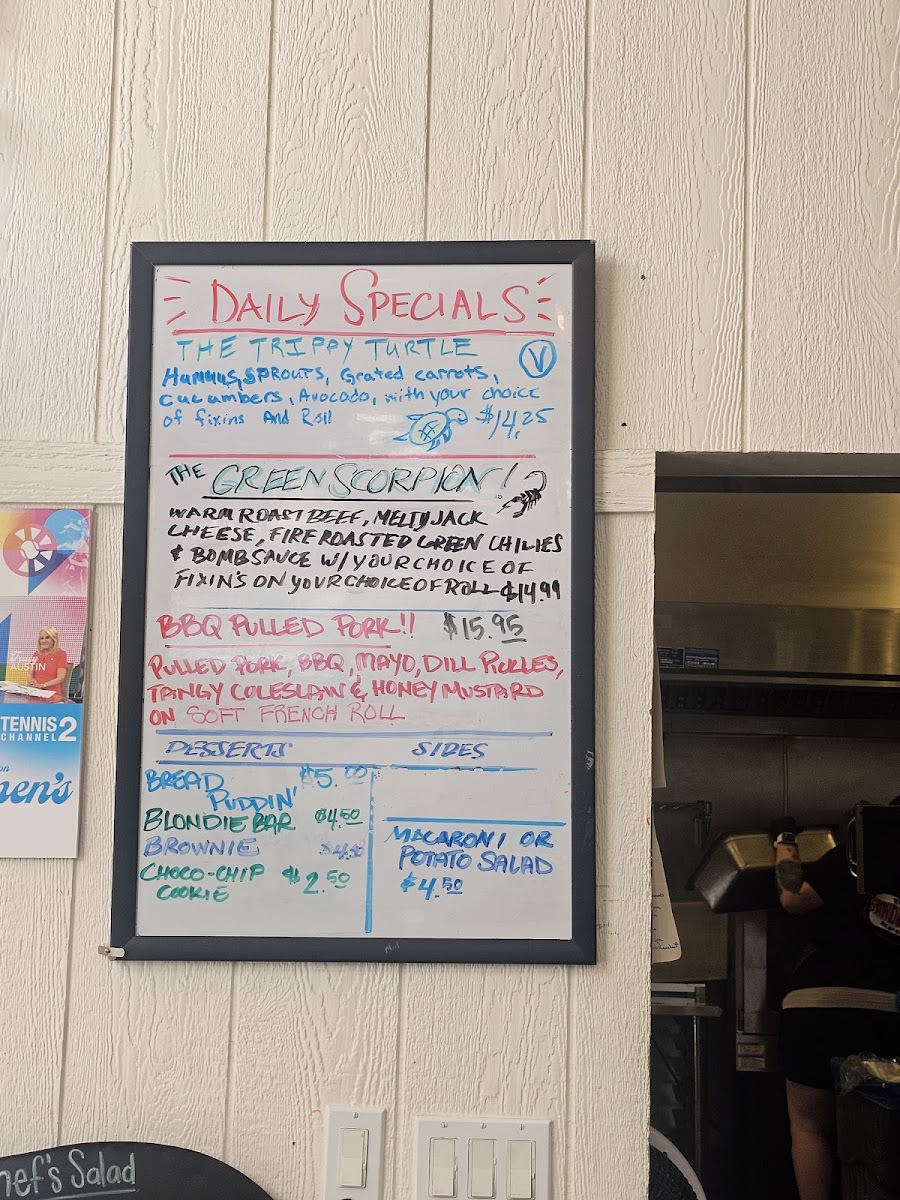 DAILY SPECIALS
THE TRIPPY TURTLE
V
Hummus, SPROUTS, Grated carrots,
cucumbers, Avocado, with your choice
of fixins And Roll
$14.25
THE GREEN SCORPION!
WARM ROAST BEEF, MELTY JACK
CHEESE, FIRE ROASTED GREEN CHILIES
& BOMB SAUCE W/ YOUR CHOICE OF
FIXIN'S ON YOUR CHOICE OF ROLL $14.99
BBQ PULLED PORK!! $15.95
PULLED PORK, BBQ, MAYO, DILL PICKLES,
TANGY COLESLAW & HONEY MUSTARD
ON SOFT FRENCH ROLL
DESSERTS
BREAD $5.00
PUDDIN'
BLONDIE BAR $4.50
BROWNIE $4.50
CHOCO-CHIP $2.50
COOKIE
SIDES
MACARONI OR
POTATO SALAD
$4.50
AUSTIN
TENNIS
CHANNEL 2
on
men's
hef's Salad